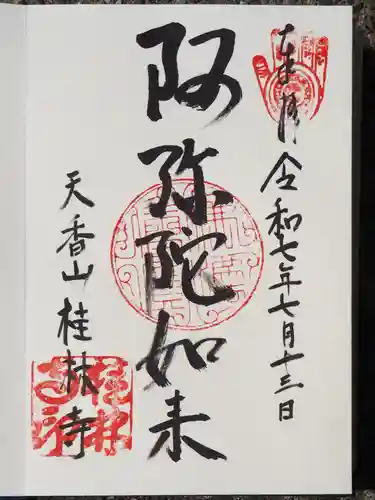 奉拝
令和七年七月十三日
阿弥陀如来
天香山桂林寺